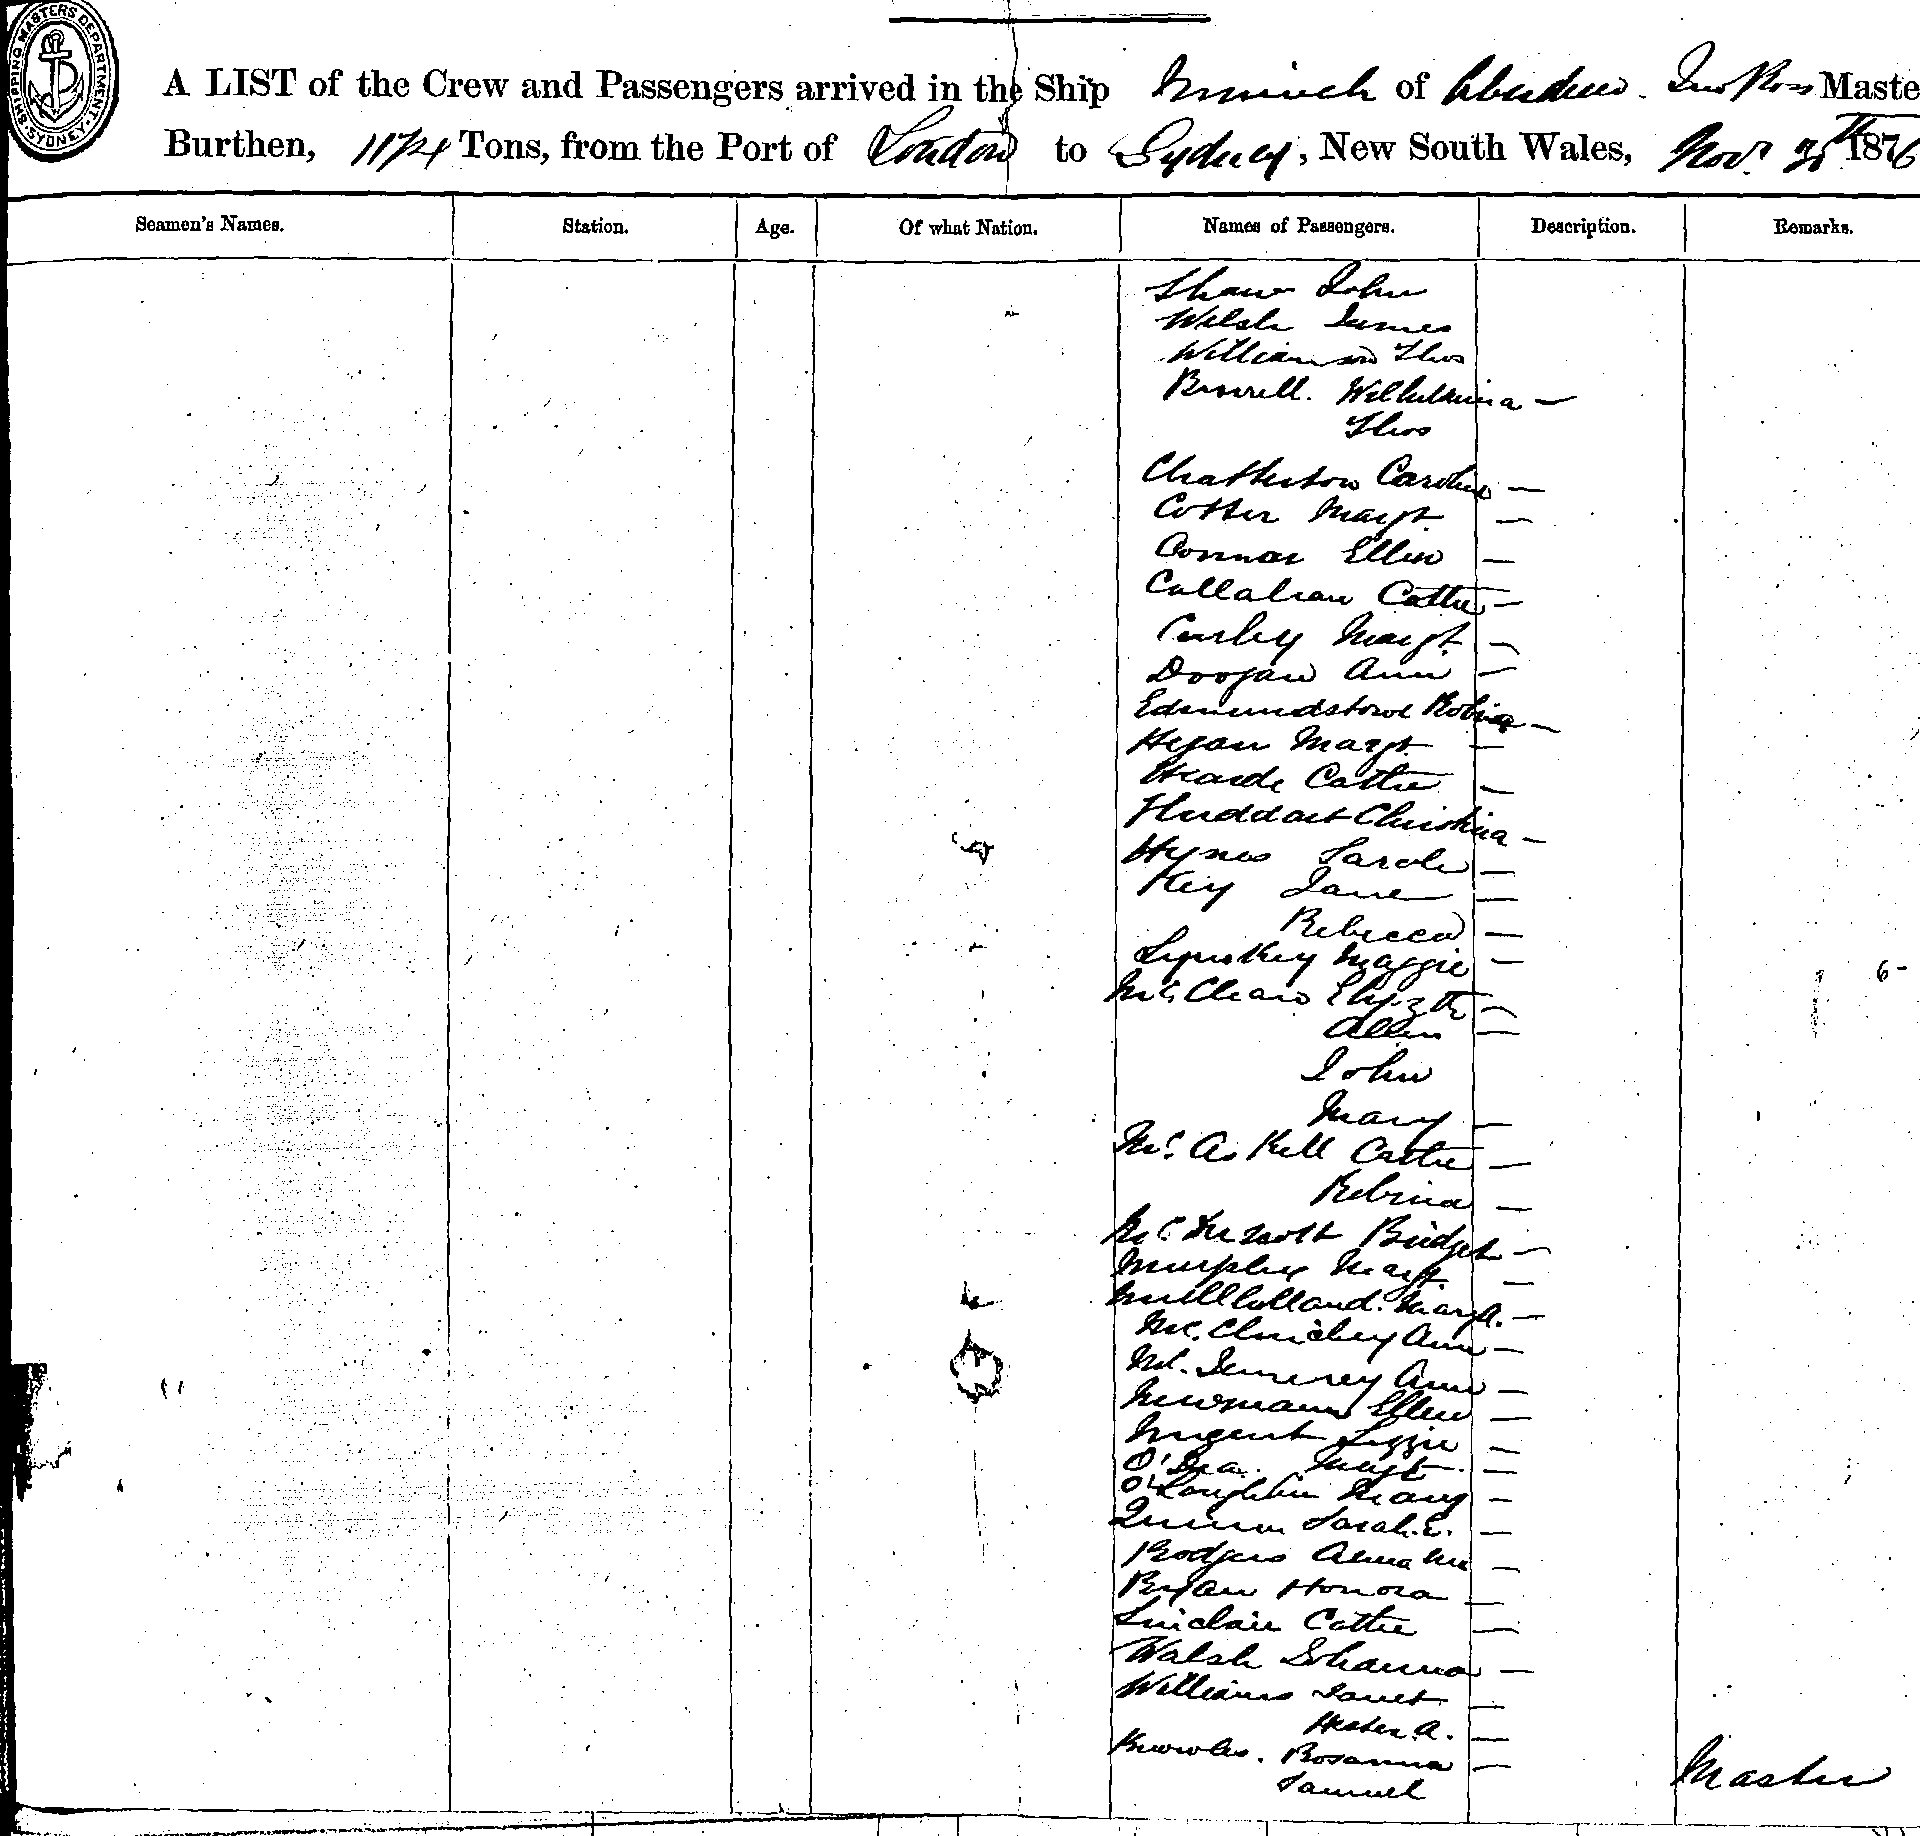 SHIPPING MASTERS DEPARTMENT SYDNEY
A LIST of the Crew and Passengers arrived in the Ship Nineveh of Aberdeen Jno Ross Maste
Burthen, 1174 Tons, from the Port of London to Sydney, New South Wales, Nov. 1876
Seamen's Names. Station. Age. Of what Nation. Names of Passengers. Description. Remarks.
Shaw John
Welsh James
Williamson Thos
Wilhelmina —
Thos
Chatterton Caroline —
Cotter Margt. —
Connor Ellen —
Callahan Cathe —
Curley Margt. —
Doogan Ann —
Edmundstone Robina —
Hegan Margt. —
Cathe —
Huddart Christina —
Hynes Sarah —
Key Jane —
Rebecca —
Lynskey Maggie —
McClean Elizth —
Allen —
John
Mary —
McAskell Cathe —
Robina —
McDermott Bridget —
Murphy Margt. —
Mullholland. Mary A. —
Ann —
Ann —
Newmann Ellen —
Nugent Lizzie —
O'Dea. Margt. —
O'Loughlin Mary —
Sarah. E. —
Rodgers Anna —
Ryan Honora —
Sinclair Cathe —
Walsh Johanna —
Williams Janet —
Hester A. —
Knowles. Rosanna —
Samuel
Master